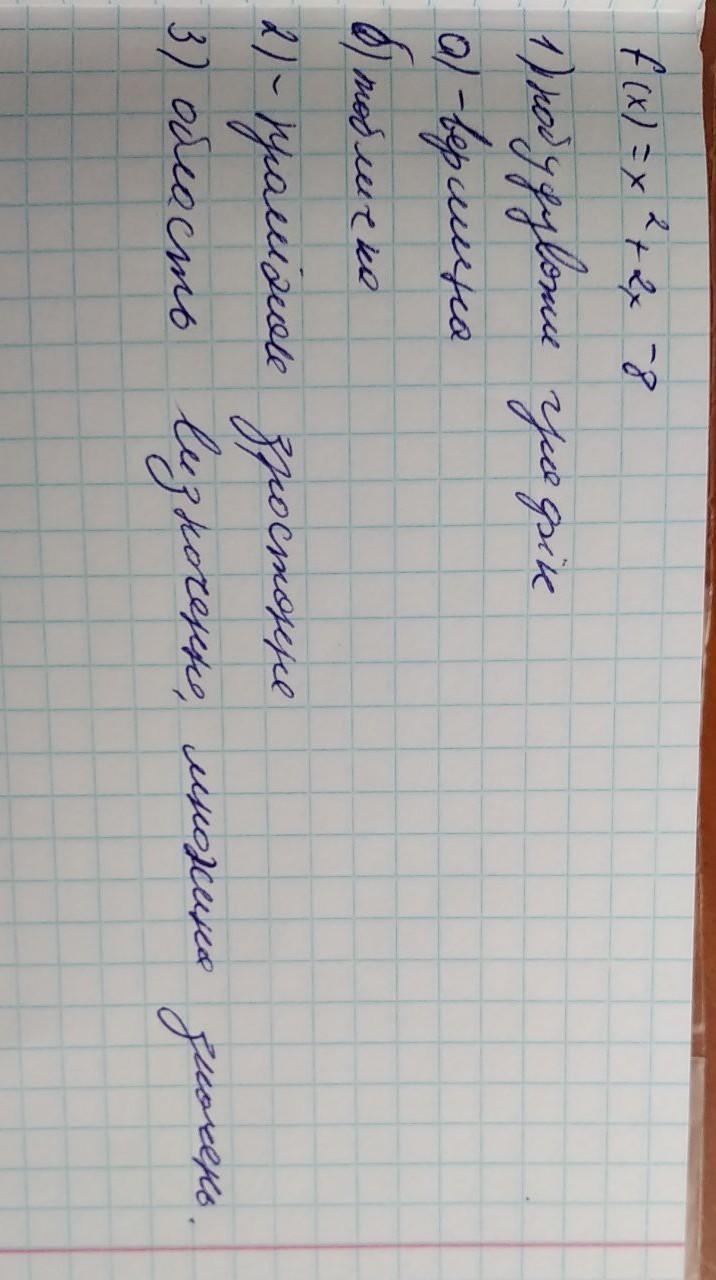 f(x) = x² + 2x - 8
1) побудувати графік
а) - вершина
б) таблична
2) - проміжок зростання
3) область визначення, множина значень.